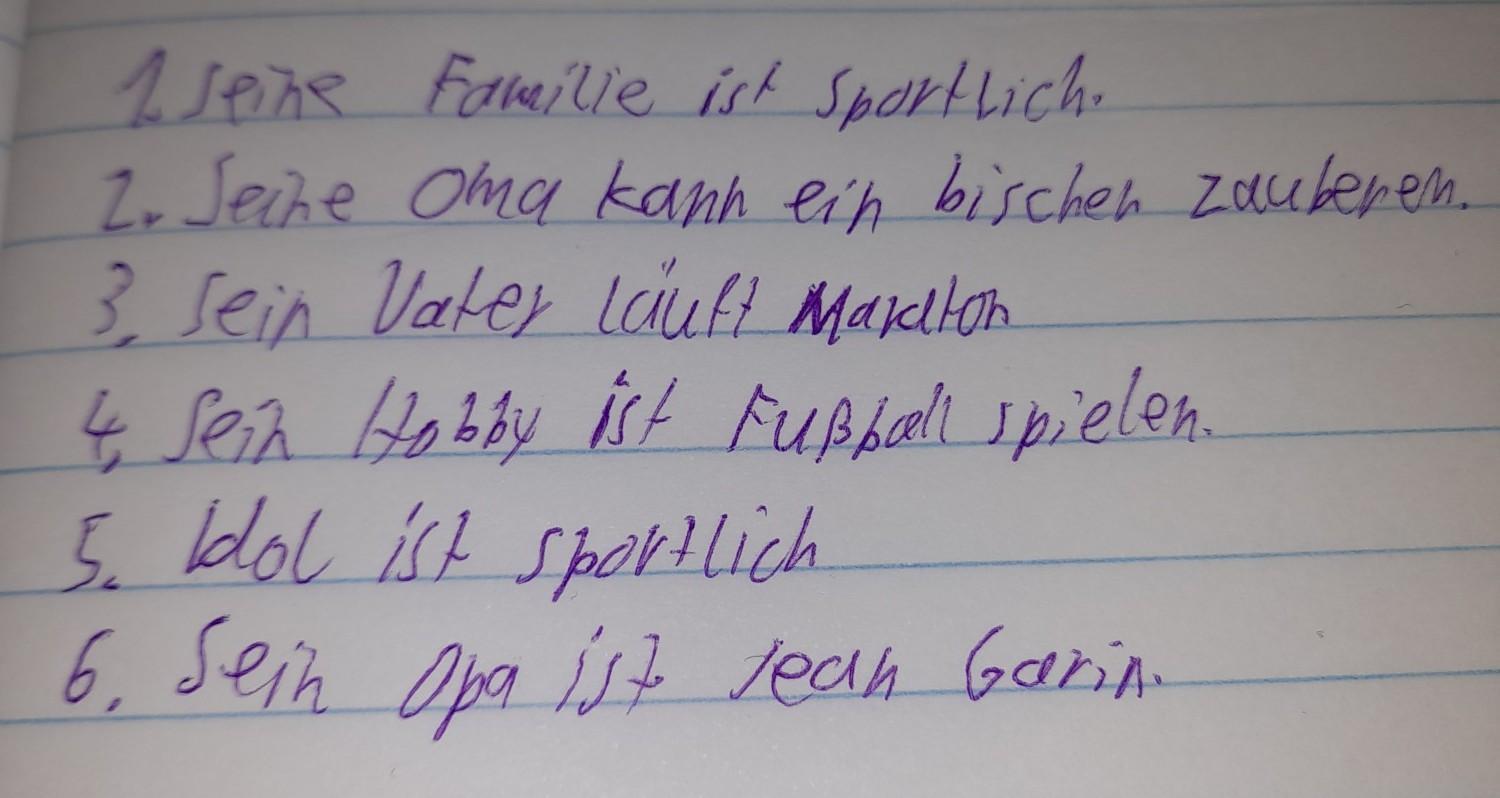 1. Seine Familie ist sportlich.
2. Seine Oma kann ein bischen zauberen.
3. Sein Vater läuft Maraton
4. Sein Hobby ist Fußball spielen.
5. Idol ist sportlich
6. Sein Opa ist Jean Garin.